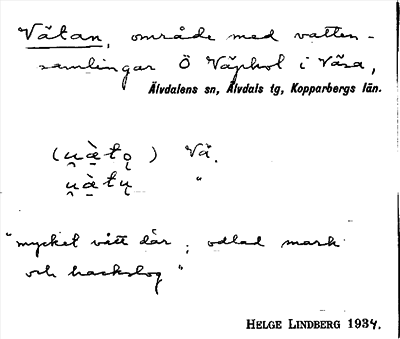 Våtan, område med vatten-
samlingar Ö Väphol i Våsa,
Älvdalens sn, Älvdals tg, Kopparbergs län.
(u̯à̱tǫ) Vå.
u̯à̱tų "
"mycket vått där; odlad mark
och hackslog"
HELGE LINDBERG 1934.